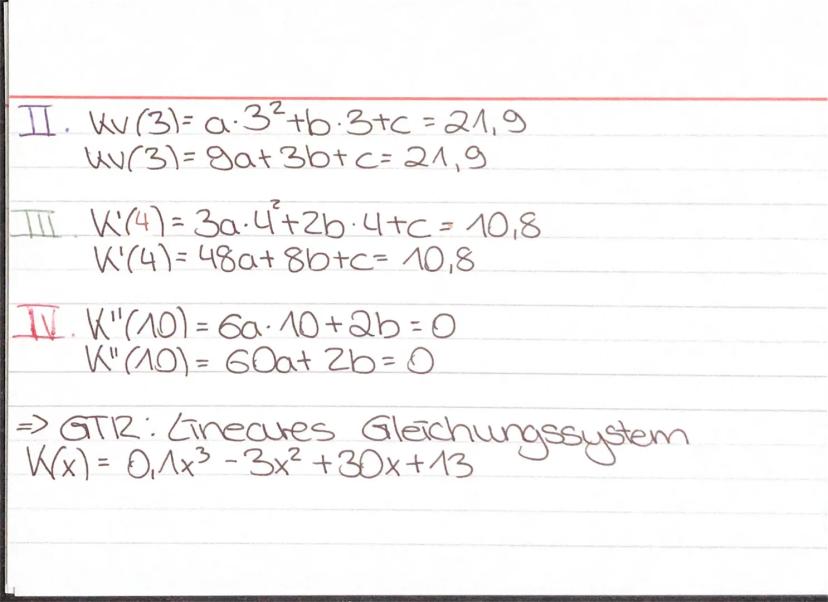 II. Kv(3)= a·3²+b·3+c = 21,9
Kv(3)= 9a+3b+c= 21,9
III K'(4)= 3a·4²+2b·4+c= 10,8
K'(4)= 48a+8b+c= 10,8
IV. K''(10)= 6a·10+2b=0
K''(10)= 60a+2b=0
=> GTR: Lineares Gleichungssystem
K(x)= 0,1x³ -3x² +30x+13